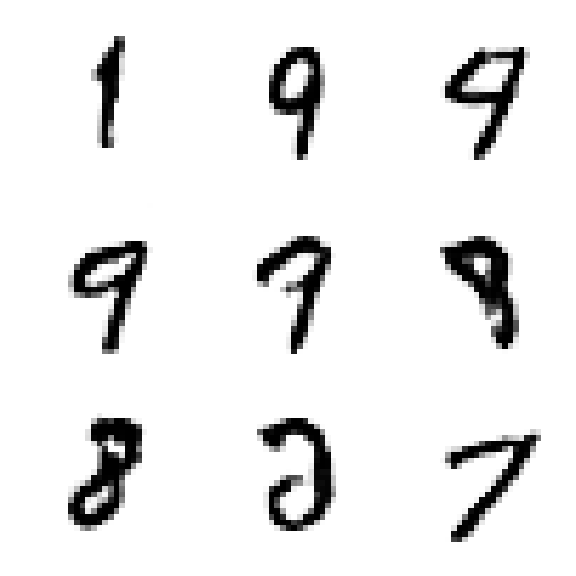 1 9 9
9 7 8
8 2 7